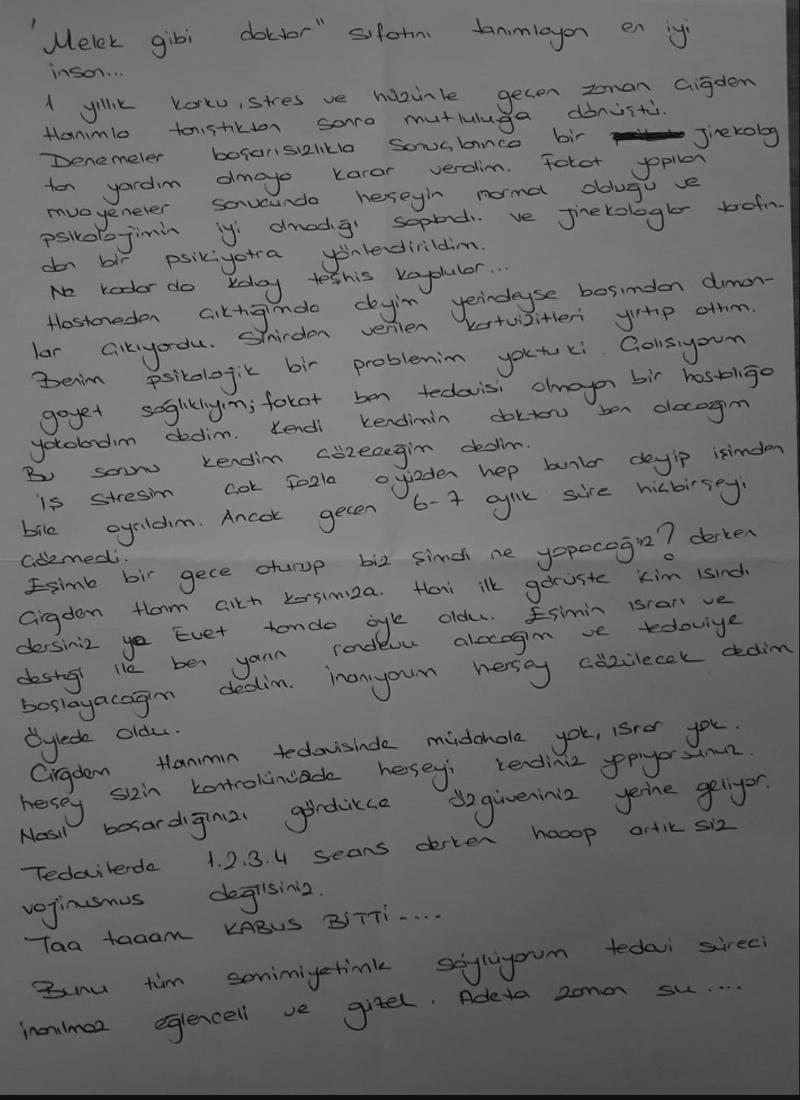 "Melek gibi doktor" sıfatını tanımlayan en iyi
insan...
1 yıllık korku, stres ve hüzünle geçen zaman Çiğdem
Hanımla tanıştıktan sonra mutluluğa dönüştü.
Denemeler başarısızlıkla sonuçlanınca bir jinekolog
tan yardım almaya karar verdim. Fakat yapılan
muayeneler sonucunda herşeyin normal olduğu ve
psikolojimin iyi olmadığı saptandı. ve jinekologlar tarafın-
dan bir psikiyatra yönlendirildim.
Ne kadar da kolay teşhis koydular...
Hastaneden çıktığımda deyim yerindeyse başımdan duman-
lar çıkıyordu. Sinirden verilen kartvizitleri yırtıp attım.
Benim psikolojik bir problemim yoktu ki. Çalışıyorum
gayet sağlıklıyım; fakat ben tedavisi olmayan bir hastalığa
yakalandım dedim. Kendi kendimin doktoru ben olacağım
Bu sorunu kendim çözeceğim dedim.
İş stresim çok fazla o yüzden hep bunlar deyip işimden
bile ayrıldım. Ancak geçen 6-7 aylık süre hiçbirşeyi
çözmedi.
Eşimle bir gece oturup biz şimdi ne yapacağız? derken
Çiğdem Hanım çıktı karşımıza. Hani ilk görüşte içim ısındı
dersiniz ya Evet tamda öyle oldu. Eşimin ısrarı ve
desteği ile ben yarın randevu alacağım ve tedaviye
başlayacağım dedim. İnanıyorum herşey çözülecek dedim
Öylede oldu.
Çiğdem Hanımın tedavisinde müdahale yok, ısrar yok.
herşey sizin kontrolünüzde herşeyi kendiniz yapıyorsunuz.
Nasıl başardığınızı gördükçe özgüveniniz yerine geliyor.
Tedavilerde 1.2.3.4 seans derken haoop artık siz
vajinusmus değilsiniz.
Taa taaam KABUS BİTTİ....
Bunu tüm samimiyetimle söylüyorum tedavi süreci
inanılmaz eğlenceli ve güzel. Adeta zaman su....